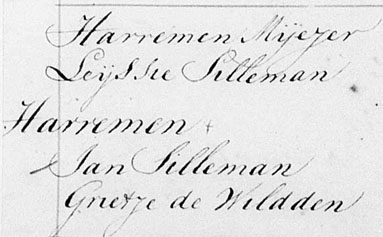 Harremen Mÿezer
Leÿshe Silleman
Harremen +
Jan Silleman
Grietje de Wildden